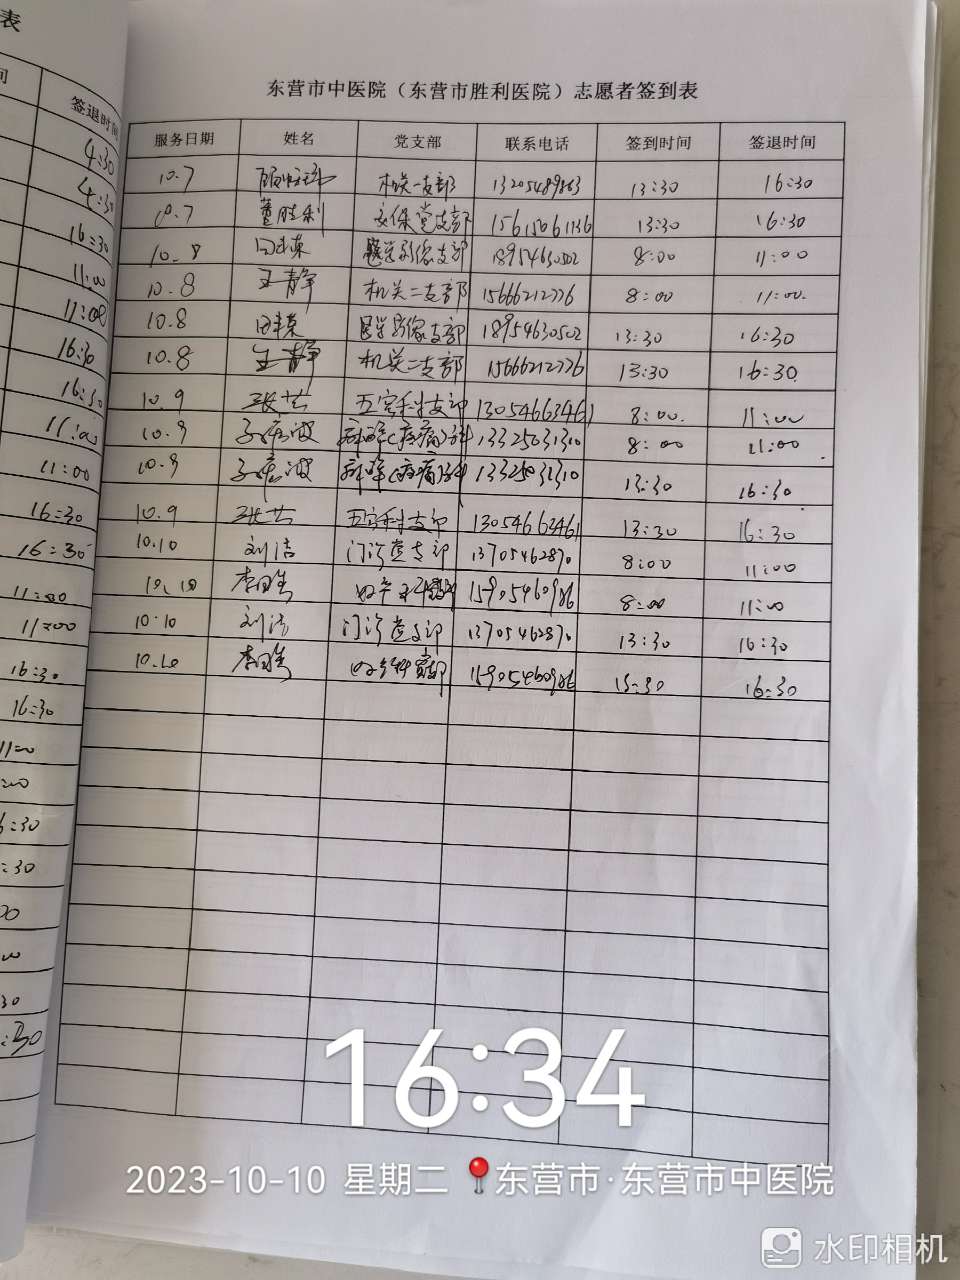 表
间
签退时间
4:30
4:30
16:30
11:00
11:00
16:30
16:30
11:00
11:00
16:30
16:30
11:00
11:00
16:30
16:30
11:00
:00
6:30
:30
00
30
:30
东营市中医院（东营市胜利医院）志愿者签到表
服务日期 姓名 党支部 联系电话 签到时间 签退时间
10.7 机关一支部 13205489863 13:30 16:30
10.7 董胜利 安保党支部 15615061136 13:30 16:30
10.8 田丰荣 医学影像支部 18954630502 8:00 11:00
10.8 王静 机关二支部 15666212776 8:00 11:00
10.8 田丰荣 医学影像支部 18954630502 13:30 16:30
10.8 王静 机关二支部 15666212776 13:30 16:30
10.9 张芸 五官科支部 13054663461 8:00 11:00
10.9 13325031310 8:00 11:00
10.9 13325031310 13:30 16:30
10.9 张芸 五官科支部 13054663461 13:30 16:30
10.10 刘洁 门诊党支部 13705462870 8:00 11:00
10.10 15905460986 8:00 11:00
10.10 刘洁 门诊党支部 13705462870 13:30 16:30
10.10 15905460986 13:30 16:30
16:34
2023-10-10 星期二 东营市·东营市中医院
水印相机